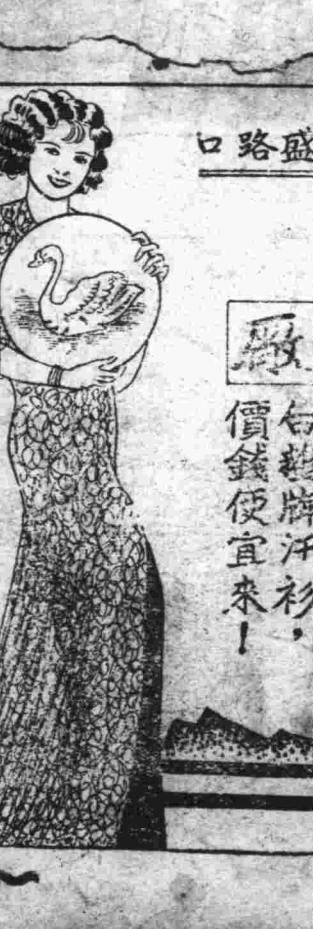 盛路口
廠
白鵝牌汗衫，
價錢便宜來！